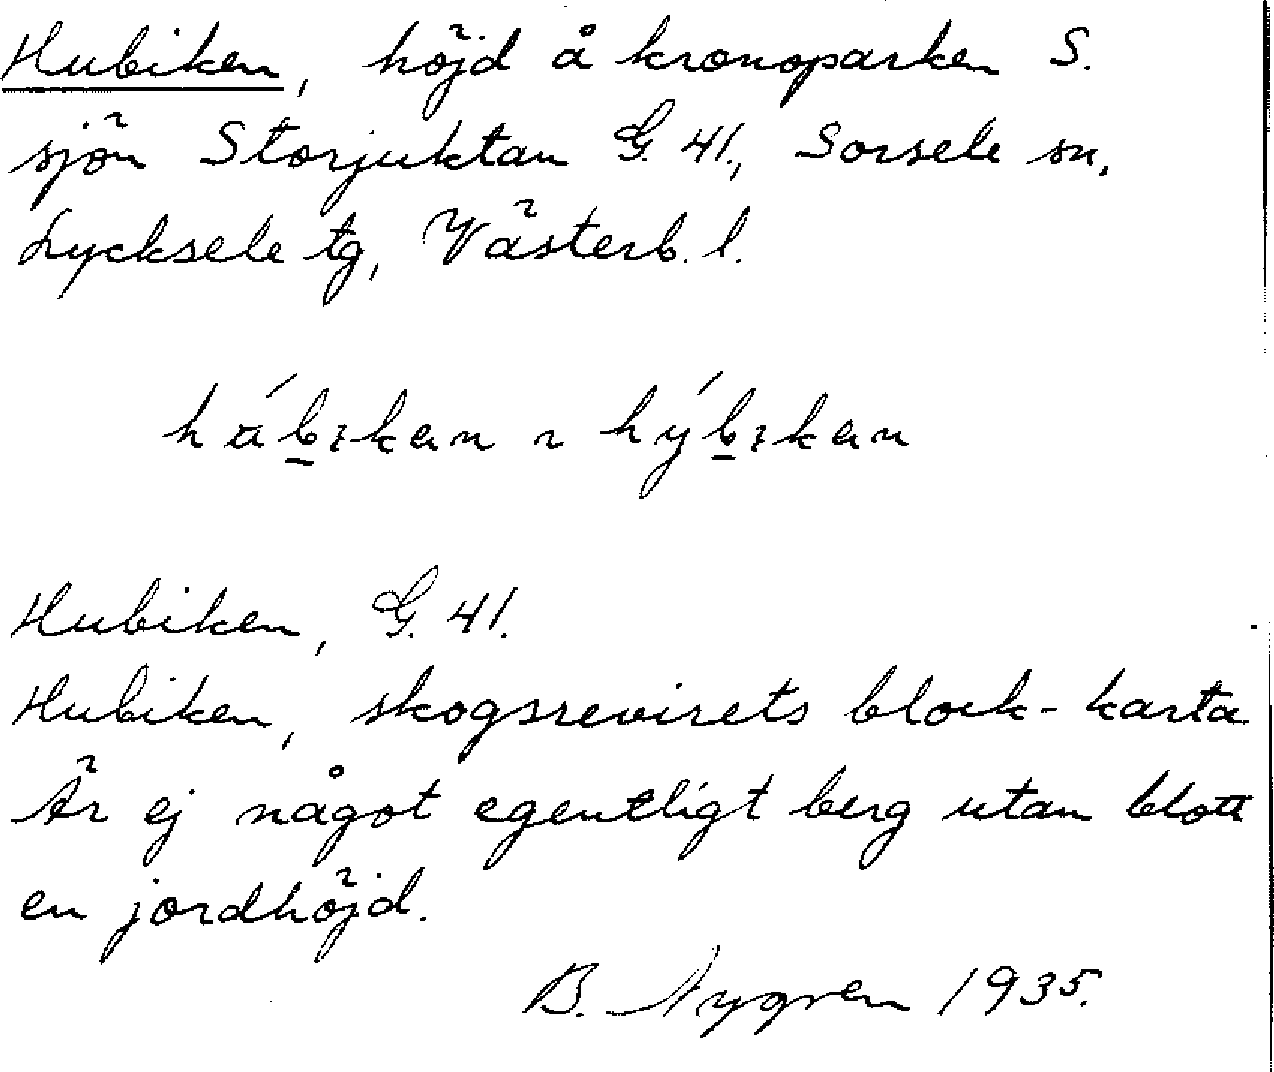 Hubiken, höjd å kronoparken S.
sjön Storjuktan G. 41., Sorsele sn,
Lycksele tg, Västerb. l.
Hubiken, G. 41.
Hubiken, skogsrevirets block-karta
Är ej något egentligt berg utan blott
en jordhöjd.
B. Nygren 1935.